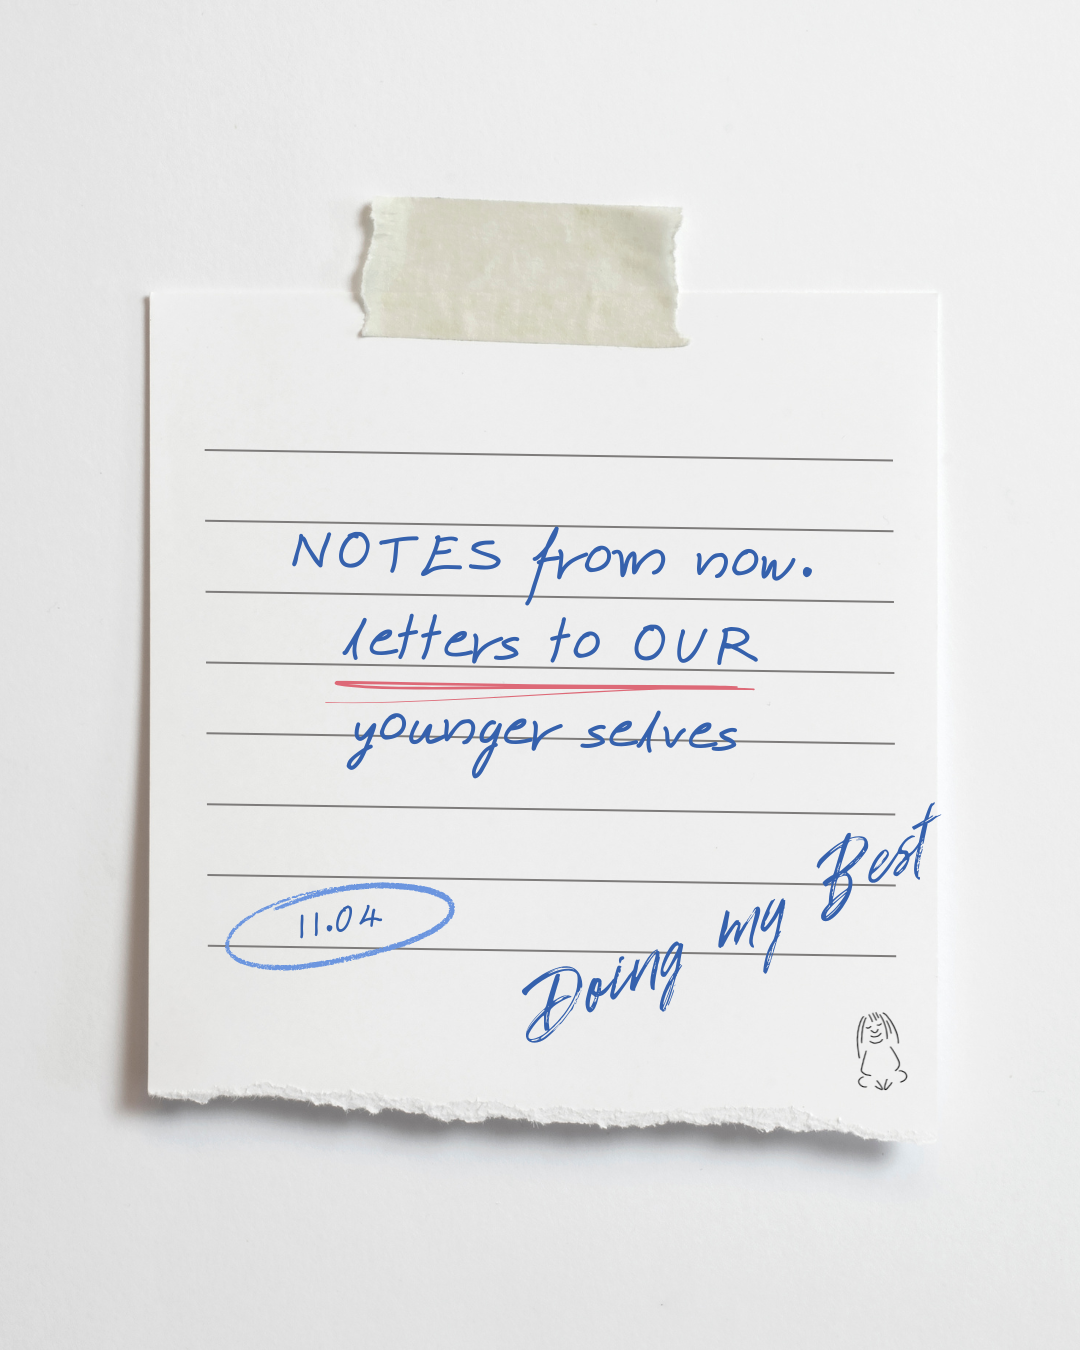 NOTES from now.
letters to OUR
younger selves
11.04
Doing my Best